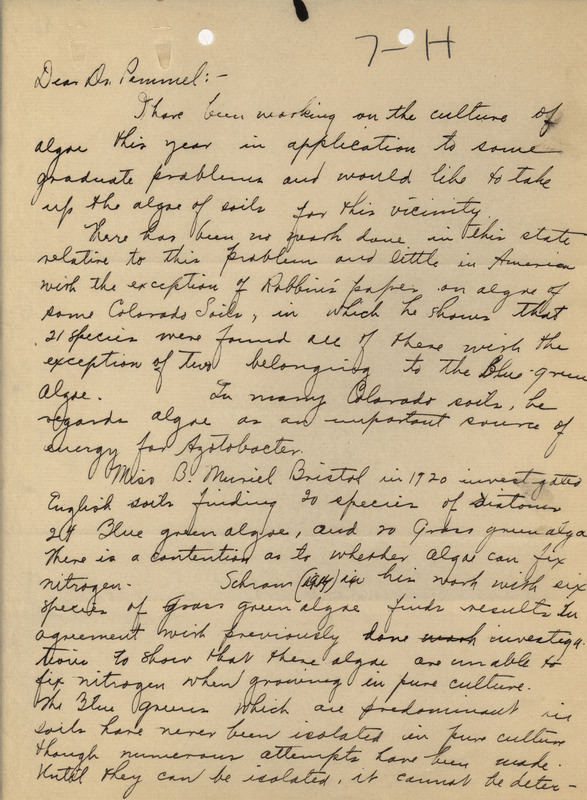 7-H
Dear Dr. Pammel:-
I have been working on the culture of
algae this year in application to some
graduate problems and would like to take
up the algae of soils for this vicinity.
There has been no work done in this state
relative to this problem and little in America
with the exception of Robbin's paper on algae of
some Colorado Soils, in which he shows that
21 species were found all of these with the
exception of two belonging to the Blue-green
algae. In many Colorado soils, he
regards algae as an important source of
energy for Azotobacter.
Miss B. Muriel Bristol in 1920 investigated
English soils finding 20 species of diatoms
24 Blue green algae, and 20 Grass green algae
There is a contention as to whether algae can fix
nitrogen. Schram (1914) in his work with six
species of Grass green algae finds results in
agreement with previously done work investiga-
tions to show that these algae are unable to
fix nitrogen when growing in pure culture.
The Blue greens which are predominant in
soils have never been isolated in pure culture
though numerous attempts have been made.
Until they can be isolated, it cannot be deter-